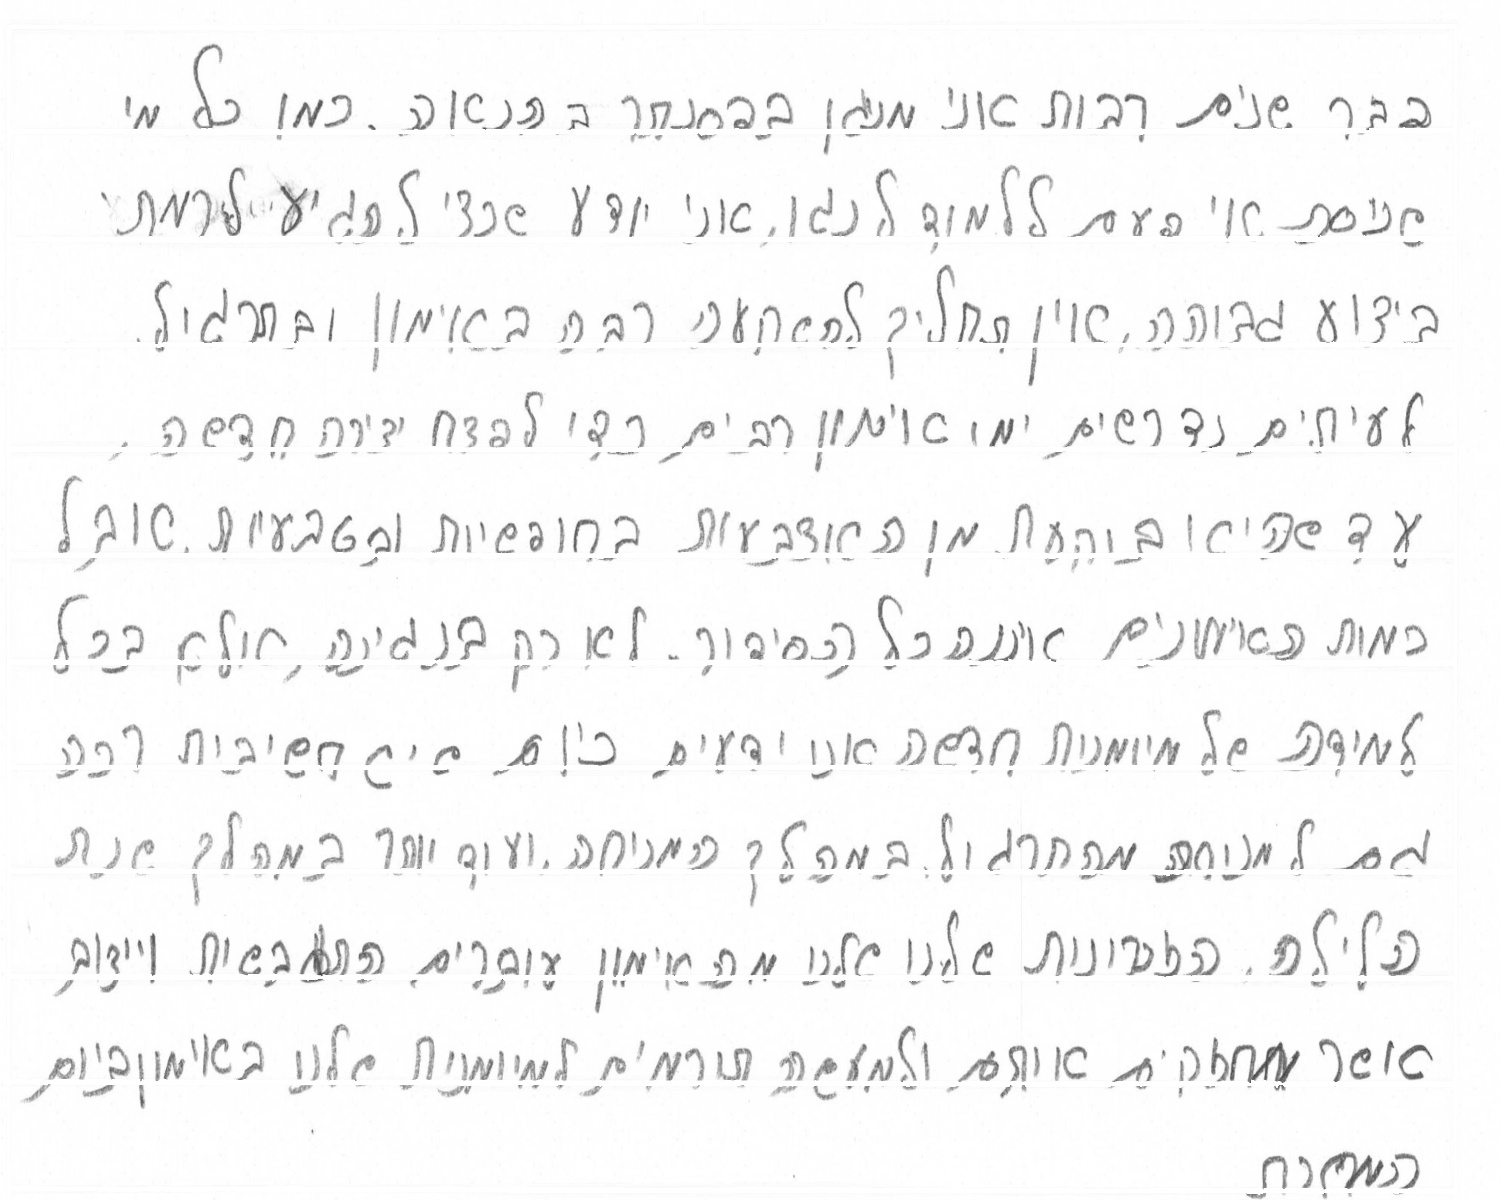 כבר שנים רבות אני מנגן בפסנתר בהנאה. כמו כל מי
שניסה אי פעם ללמוד לנגן, אני יודע שכדי להגיע לרמת
ביצוע גבוהה, אין תחליף להשקעה רבה באימון ובתרגול.
לעיתים נדרשים ימי אימון רבים כדי לפצח יצירה חדשה,
עד שהיא בוקעת מן האצבעות בחופשיות ובטבעיות. אבל
כמות האימונים איננה כל הסיפור. לא רק בנגינה, אלא בכל
למידה של מיומנות חדשה אנו יודעים כיום שיש חשיבות רבה
גם למנוחה מהתרגול. במהלך המנוחה, ועוד יותר במהלך שנת
הלילה, הזכרונות שלנו שלנו מהאימון עוברים התגבשות וייצוב
אשר מחזקים אותם ולמעשה תורמים למיומנות שלנו באימון ביום
המחרת